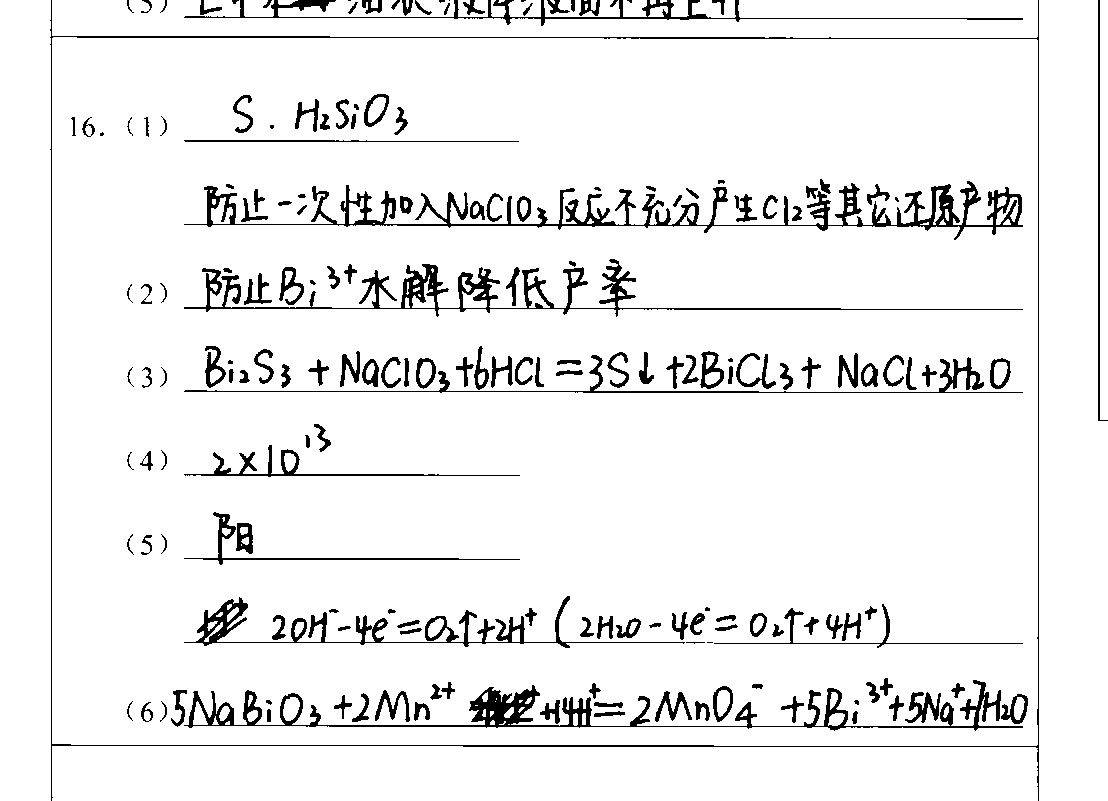 (5) 上下 油状液体液面不再上升
16. (1) S. H₂SiO₃
防止一次性加入NaClO₃反应不充分产生Cl₂等其它还原产物
(2) 防止Bi³⁺水解降低产率
(3) Bi₂S₃+NaClO₃+6HCl=3S↓+2BiCl₃+NaCl+3H₂O
(4) 2×10¹³
(5) 阳
2OH⁻-4e⁻=O₂↑+2H⁺(2H₂O-4e⁻=O₂↑+4H⁺)
(6) 5NaBiO₃+2Mn²⁺+14H⁺=2MnO₄⁻+5Bi³⁺+5Na⁺+7H₂O